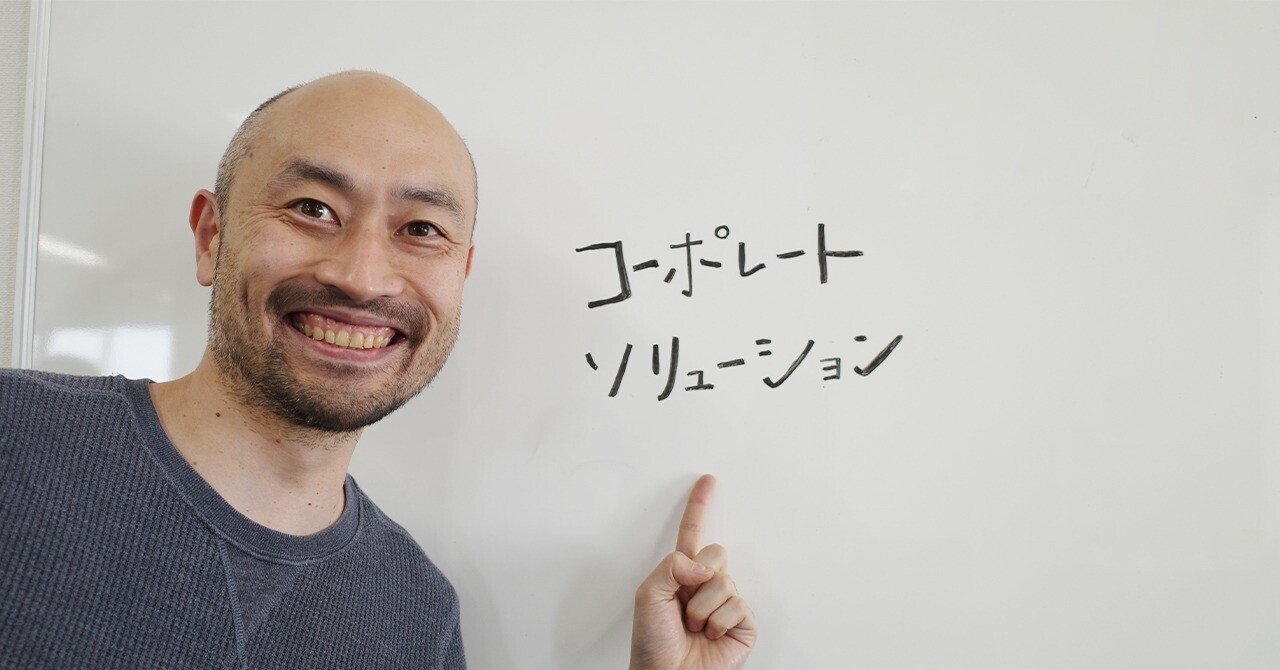 コーポレート
ソリューション